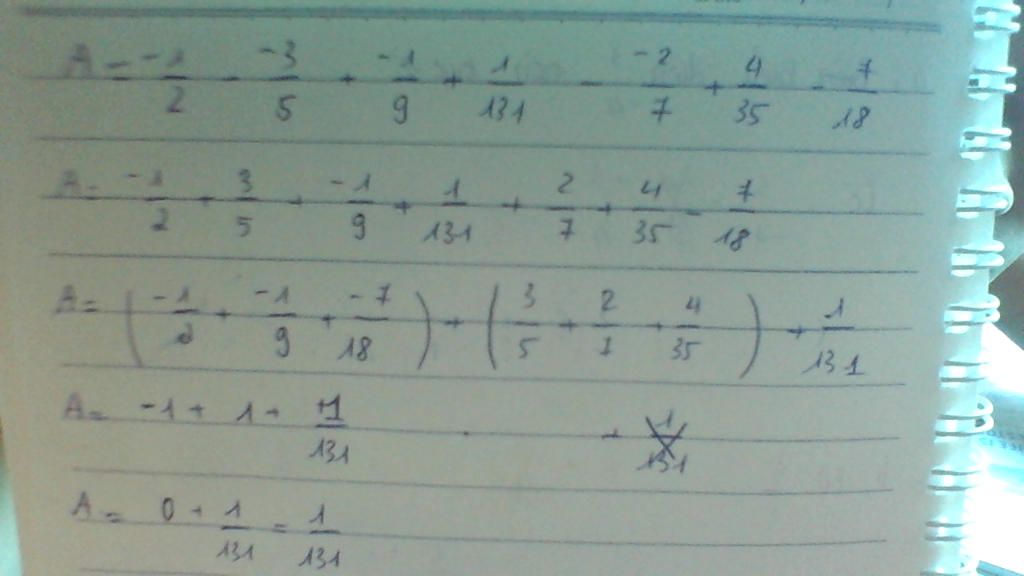 A = -1/2 - -3/5 + -1/9 + 1/131 - -2/7 + 4/35 - 7/18
A = -1/2 + 3/5 + -1/9 + 1/131 + 2/7 + 4/35 - 7/18
A = ( -1/2 + -1/9 + -7/18 ) + ( 3/5 + 2/7 + 4/35 ) + 1/131
A = -1 + 1 + +1/131
A = 0 + 1/131 = 1/131